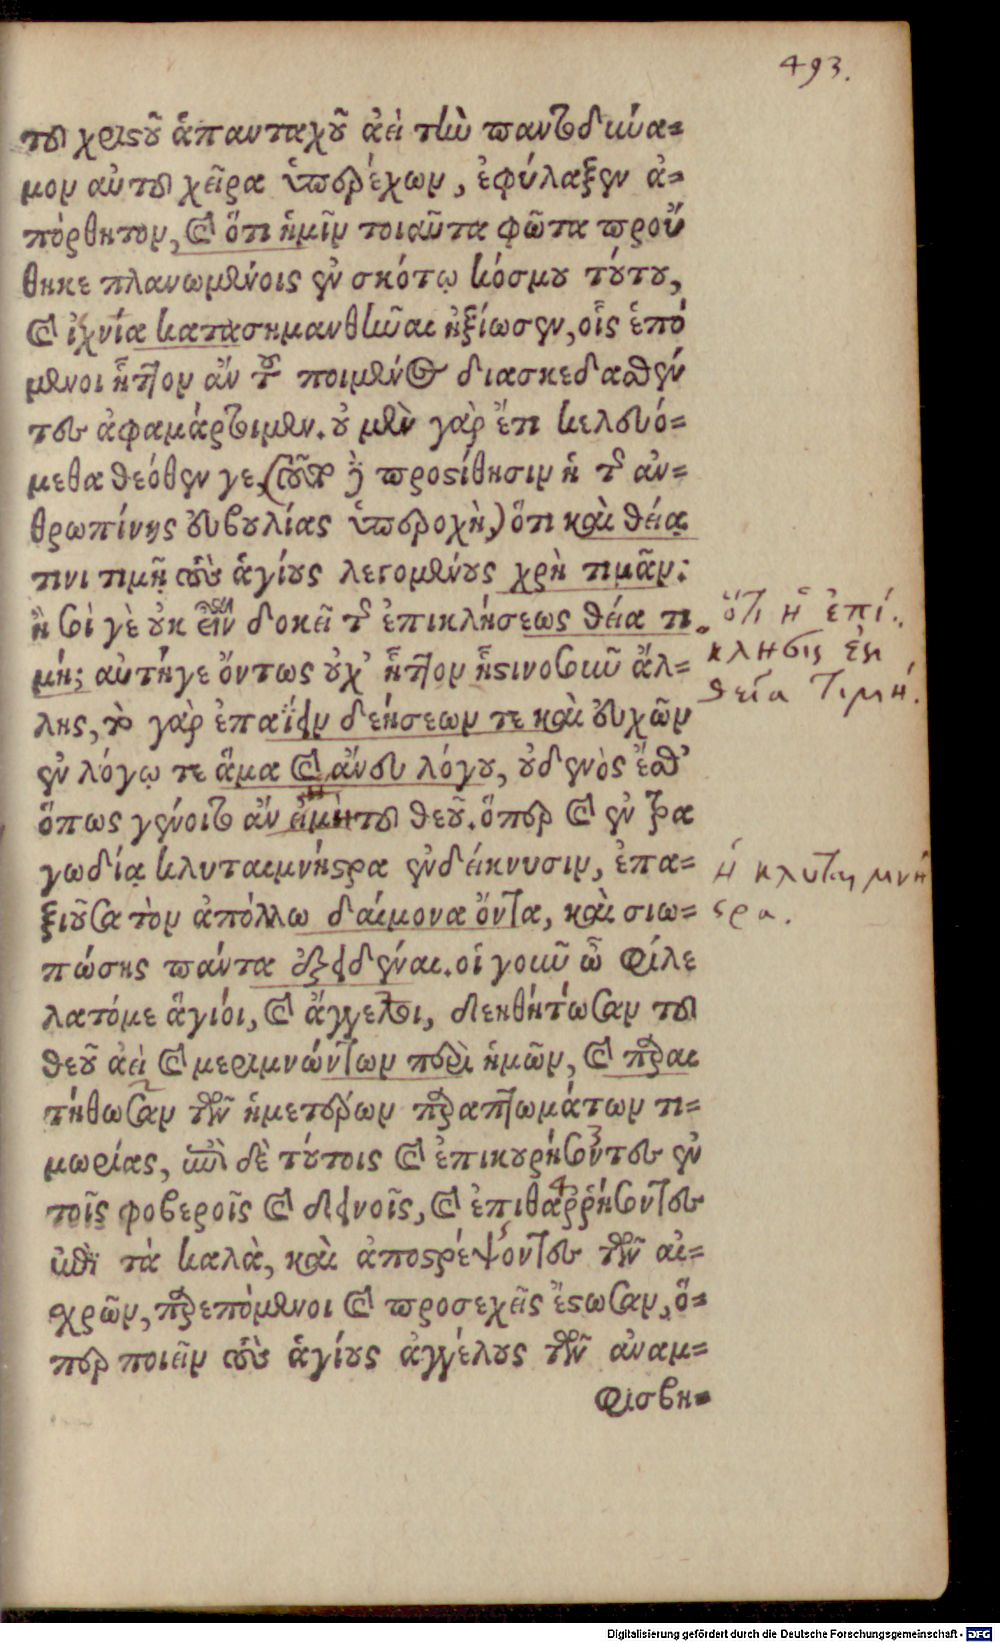 493.
τοῦ χριστοῦ ἁπανταχοῦ ἀεὶ τὴν παντοδύνα=
μον αὐτοῦ χεῖρα ὑπερέχων, ἐφύλαξεν ἀ=
πόρθητον, καὶ ὅτι ἡμῖν τοιαῦτα φῶτα προὔ
θηκε πλανωμένοις ἐν σκότῳ κόσμου τούτου,
καὶ ἰχνία κατασημανθῆναι ἠξίωσεν, οἷς ἑπό
μενοι ἧττον ἂν τοῦ ποιμένος διασκεδασθέν
τες ἀφαμάρτοιμεν. οὐ μὲν γὰρ ἔτι κελευό=
μεθα θεόθεν γε, (τοῦτο γὰρ προστίθησιν ἡ τῆς ἀν=
θρωπίνης εὐβουλίας ὑπεροχὴ,) ὅτι καὶ θείᾳ
τινι τιμῇ τοὺς ἁγίους λεγομένους χρὴ τιμᾶν;
ἢ σοὶ γε οὐκ εἶν δοκεῖ τῆς ἐπικλήσεως θεία τι
μή; αὐτήγε ὄντως οὐχ' ἧττον ἧστινοσοῦν ἄλ=
λης, τὸ γὰρ ἐπαΐειν δεήσεων τε καὶ εὐχῶν
ἐν λόγῳ τε ἅμα καὶ ἄνευ λόγου, οὐδενὸς ἔσθ'
ὅπως γένοιτο ἂν εἰμὴ τοῦ θεοῦ. ὅπερ καὶ ἐν τρα
γωδίᾳ κλυταιμνήστρα ἐνδείκνυσιν, ἐπα=
ξιοῦσα τὸν ἀπόλλω δαίμονα ὄντα, καὶ σιω=
πώσης πάντα ἐξειδέναι. οἱ γοῦν ὦ φίλε
λατόμε ἅγιοι, καὶ ἄγγελοι, δεηθήτωσαν τοῦ
θεοῦ ἀεὶ καὶ μεριμνώντων περὶ ἡμῶν, καὶ παραι
τήθωσαν τῶν ἡμετέρων παραπτωμάτων τι=
μωρίας, ἐπὶ δὲ τούτοις καὶ ἐπικουρήσοντες ἐν
τοῖς φοβεροῖς καὶ δεινοῖς, καὶ ἐπιθαρρήσοντες
ἐπὶ τὰ καλὰ, καὶ ἀποστρέψοντες τῶν αἰ=
σχρῶν, παρεπόμενοι καὶ προσεχεῖς ἔστωσαν, ὅ=
περ ποιεῖν τοὺς ἁγίους ἀγγέλους τῶν ἀναμ=
φισβη=
ὅτι ἡ ἐπί
κλησις ἐστι
θεία τιμή.
ἡ κλυταιμνή
στρα.
Digitalisierung gefördert durch die Deutsche Forschungsgemeinschaft - DFG